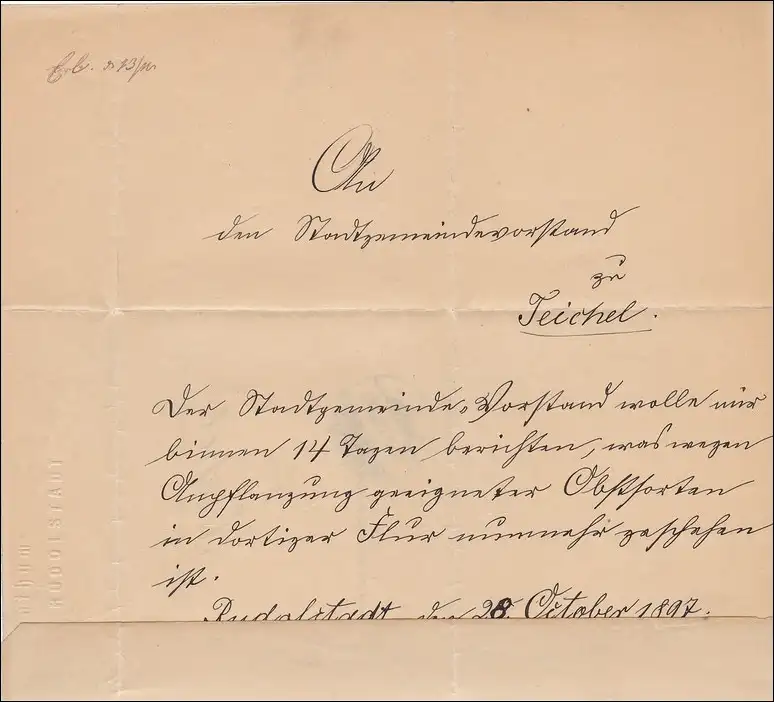 An
den Stadtgemeindevorstand
zu
Teichel.
Der Stadtgemeinde-Vorstand wolle mir
binnen 14 Tagen berichten, was wegen
Anpflanzung geeigneter Obstsorten
in dortiger Flur nunmehr geschehen
ist.
Rudolstadt, den 28. October 1897.
RUDOLSTADT